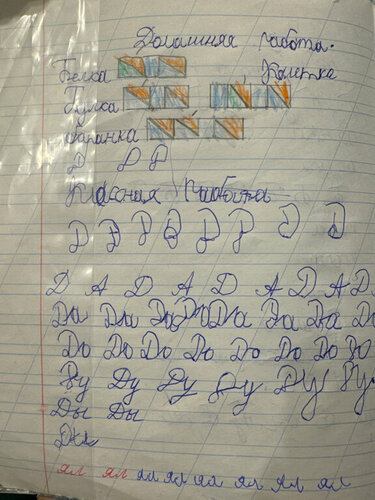 Домашняя работа.
Белка Калитка
Булка
Баранка
Д Р Р
Классная работа
Д Д Д Д Д Д Д Д
Д А Д А Д А Д А Д
Да Да Да Да Да Да Да Да
До До До До До До До До
Ду Ду Ду Ду Ду Ду
Ды Ды
Ды
ял ял ял ял ял ял ял ял